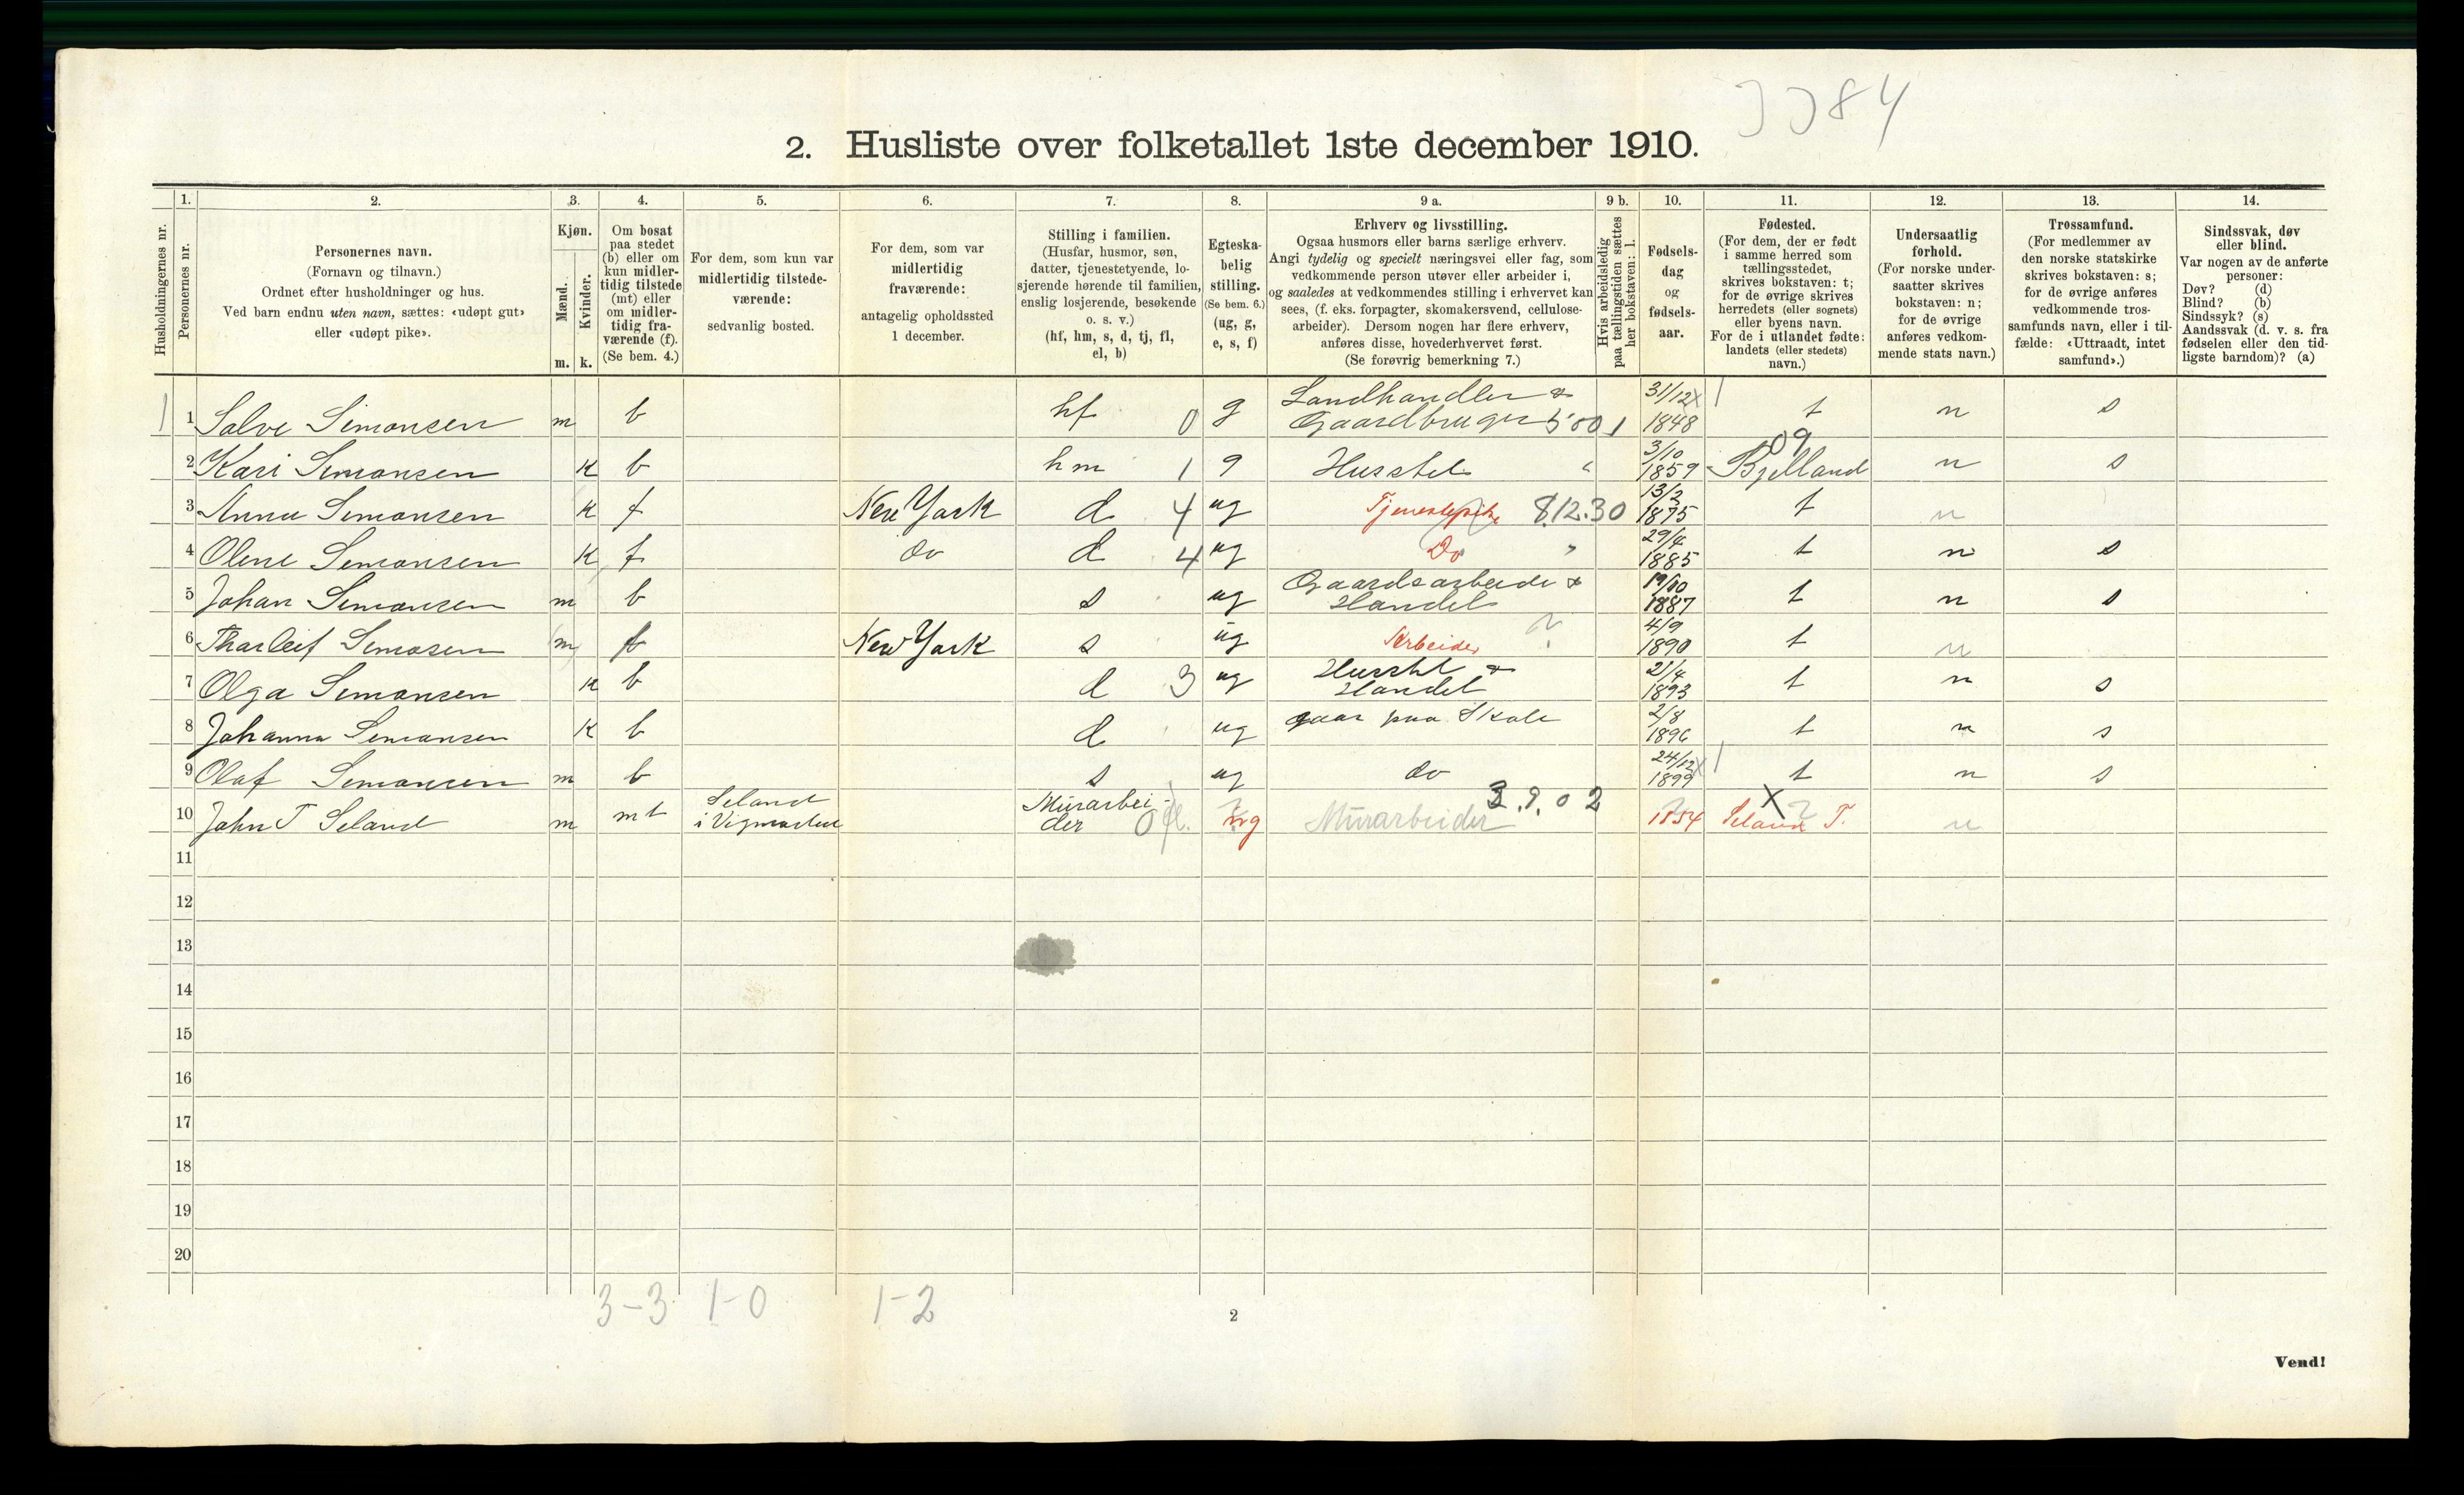 3384
2. Husliste over folketallet 1ste december 1910.
Husholdningernes nr.
1. Personernes nr.
2. Personernes navn.
(Fornavn og tilnavn.)
Ordnet efter husholdninger og hus.
Ved barn endnu uten navn, sættes: «udøpt gut»
eller «udøpt pike».
3. Kjøn.
Mænd. m.
Kvinder. k.
4. Om bosat
paa stedet
(b) eller om
kun midler-
tidig tilstede
(mt) eller
om midler-
tidig fra-
værende (f).
(Se bem. 4.)
5. For dem, som kun var
midlertidig tilstede-
værende:
sedvanlig bosted.
6. For dem, som var
midlertidig
fraværende:
antagelig opholdssted
1 december.
7. Stilling i familien.
(Husfar, husmor, søn,
datter, tjenestetyende, lo-
sjerende hørende til familien,
enslig losjerende, besøkende
o. s. v.)
(hf, hm, s, d, tj, fl,
el, b)
8. Egteska-
belig
stilling.
(Se bem. 6.)
(ug, g,
e, s, f)
9 a. Erhverv og livsstilling.
Ogsaa husmors eller barns særlige erhverv.
Angi tydelig og specielt næringsvei eller fag, som
vedkommende person utøver eller arbeider i,
og saaledes at vedkommendes stilling i erhvervet kan
sees, (f. eks. forpagter, skomakersvend, cellulose-
arbeider). Dersom nogen har flere erhverv,
anføres disse, hovederhvervet først.
(Se forøvrig bemerkning 7.)
9 b. Hvis arbeidsledig
paa tællingstiden sættes
her bokstaven: l.
10. Fødsels-
dag
og
fødsels-
aar.
11. Fødested.
(For dem, der er født
i samme herred som
tællingsstedet,
skrives bokstaven: t;
for de øvrige skrives
herredets (eller sognets)
eller byens navn.
For de i utlandet fødte:
landets (eller stedets)
navn.)
12. Undersaatlig
forhold.
(For norske under-
saatter skrives
bokstaven: n;
for de øvrige
anføres vedkom-
mende stats navn.)
13. Trossamfund.
(For medlemmer av
den norske statskirke
skrives bokstaven: s;
for de øvrige anføres
vedkommende tros-
samfunds navn, eller i til-
fælde: «Uttraadt, intet
samfund».)
14. Sindssvak, døv
eller blind.
Var nogen av de anførte
personer:
Døv? (d)
Blind? (b)
Sindssyk? (s)
Aandssvak (d. v. s. fra
fødselen eller den tid-
ligste barndom)? (a)
1 1 Salve Simonsen m b hf 0 g Landhandler & Gaardbruger 5001 31/12 1848 t n s
2 Kari Simonsen K b hm 1 g Husstel " 3/10 1859 09 Bjelland n s
3 Anna Simonsen K f New York d 4 ug Tjenestepike 812.30 13/2 1875 t n
4 Olene Simonsen K f do d 4 ug Do " 29/4 1885 t n s
5 Johan Simonsen m b s ug Gaardsarbeide & Handel 19/10 1887 t n s
6 Tharleif Simosen m f New York s ug Arbeider ? 4/9 1890 t n
7 Olga Simonsen K b d 3 ug Husstel & Handel 21/4 1893 t n s
8 Johanna Simonsen K b d ug gaar paa Skole 2/8 1896 t n s
9 Olaf Simonsen m b s ug do 24/12 1899 t n s
10 John T Seland m mt Seland i Vigmostad Murarbei-der 0 fl. ug Murarbeider 3.9.02 1854 Seland T. n
11
12
13
14
15
16
17
18
19
20
3-3 1-0 1-2
2
Vend!